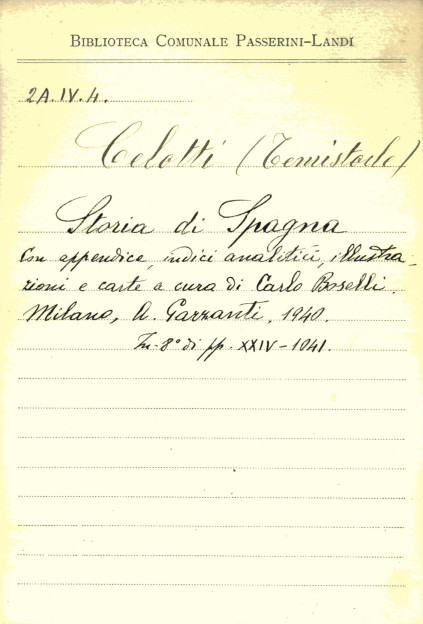 BIBLIOTECA COMUNALE PASSERINI-LANDI
2A.IV.4.
Celotti (Temistocle)
Storia di Spagna
Con appendice, indici analitici, illustra-
zioni e carte a cura di Carlo Boselli.
Milano, A. Garzanti, 1940.
In-8° di pp. XXIV-1041.